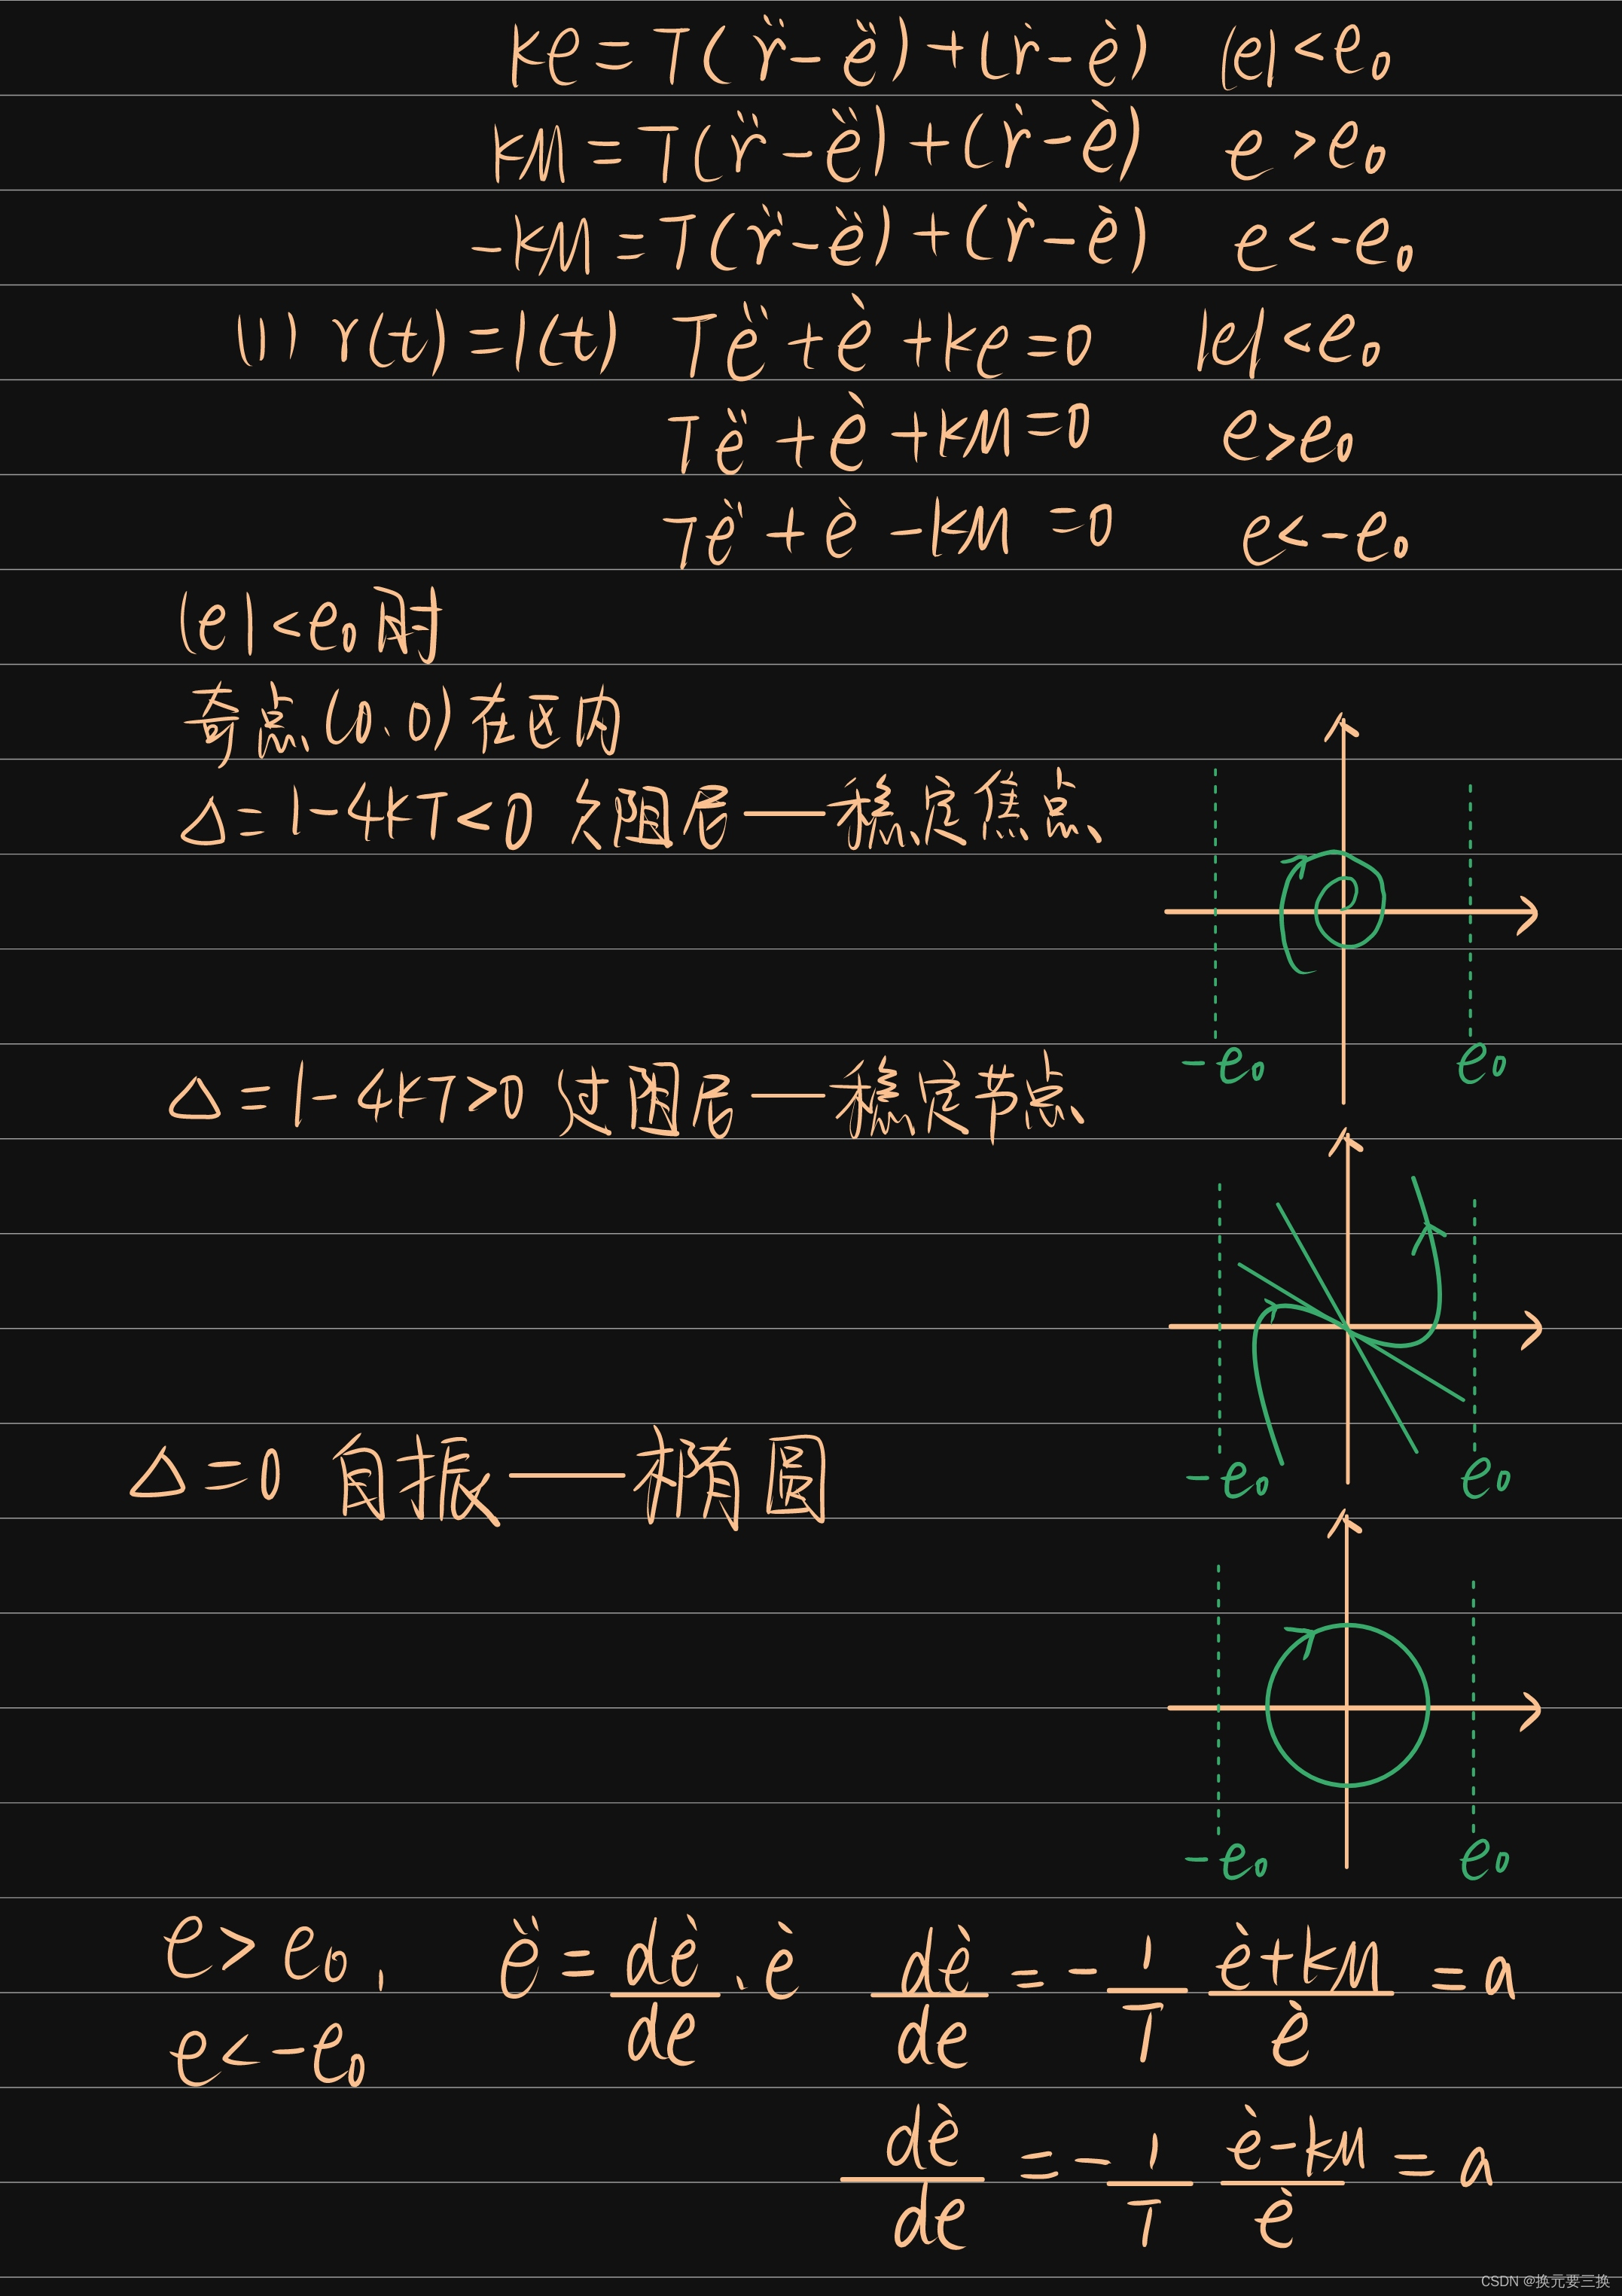 ke = T(r̈ - ë) + (ṙ - ė) |e| < e₀
kM = T(r̈ - ë) + (ṙ - ė) e > e₀
-kM = T(r̈ - ë) + (ṙ - ė) e < -e₀
(1) r(t) = 1(t) Të + ė + ke = 0 |e| < e₀
Të + ė + kM = 0 e > e₀
Të + ė - kM = 0 e < -e₀
|e| < e₀ 时
奇点(0,0)在区内
Δ = 1 - 4kT < 0 欠阻尼——稳定焦点
-e₀ e₀
Δ = 1 - 4kT > 0 过阻尼——稳定节点
-e₀ e₀
Δ = 0 自振——椭圆
-e₀ e₀
e > e₀, ë = dė/de · ė dė/de = - 1/T (ė + kM)/ė = a
e < -e₀
dė/de = - 1/T (ė - kM)/ė = a
CSDN @换元要三换